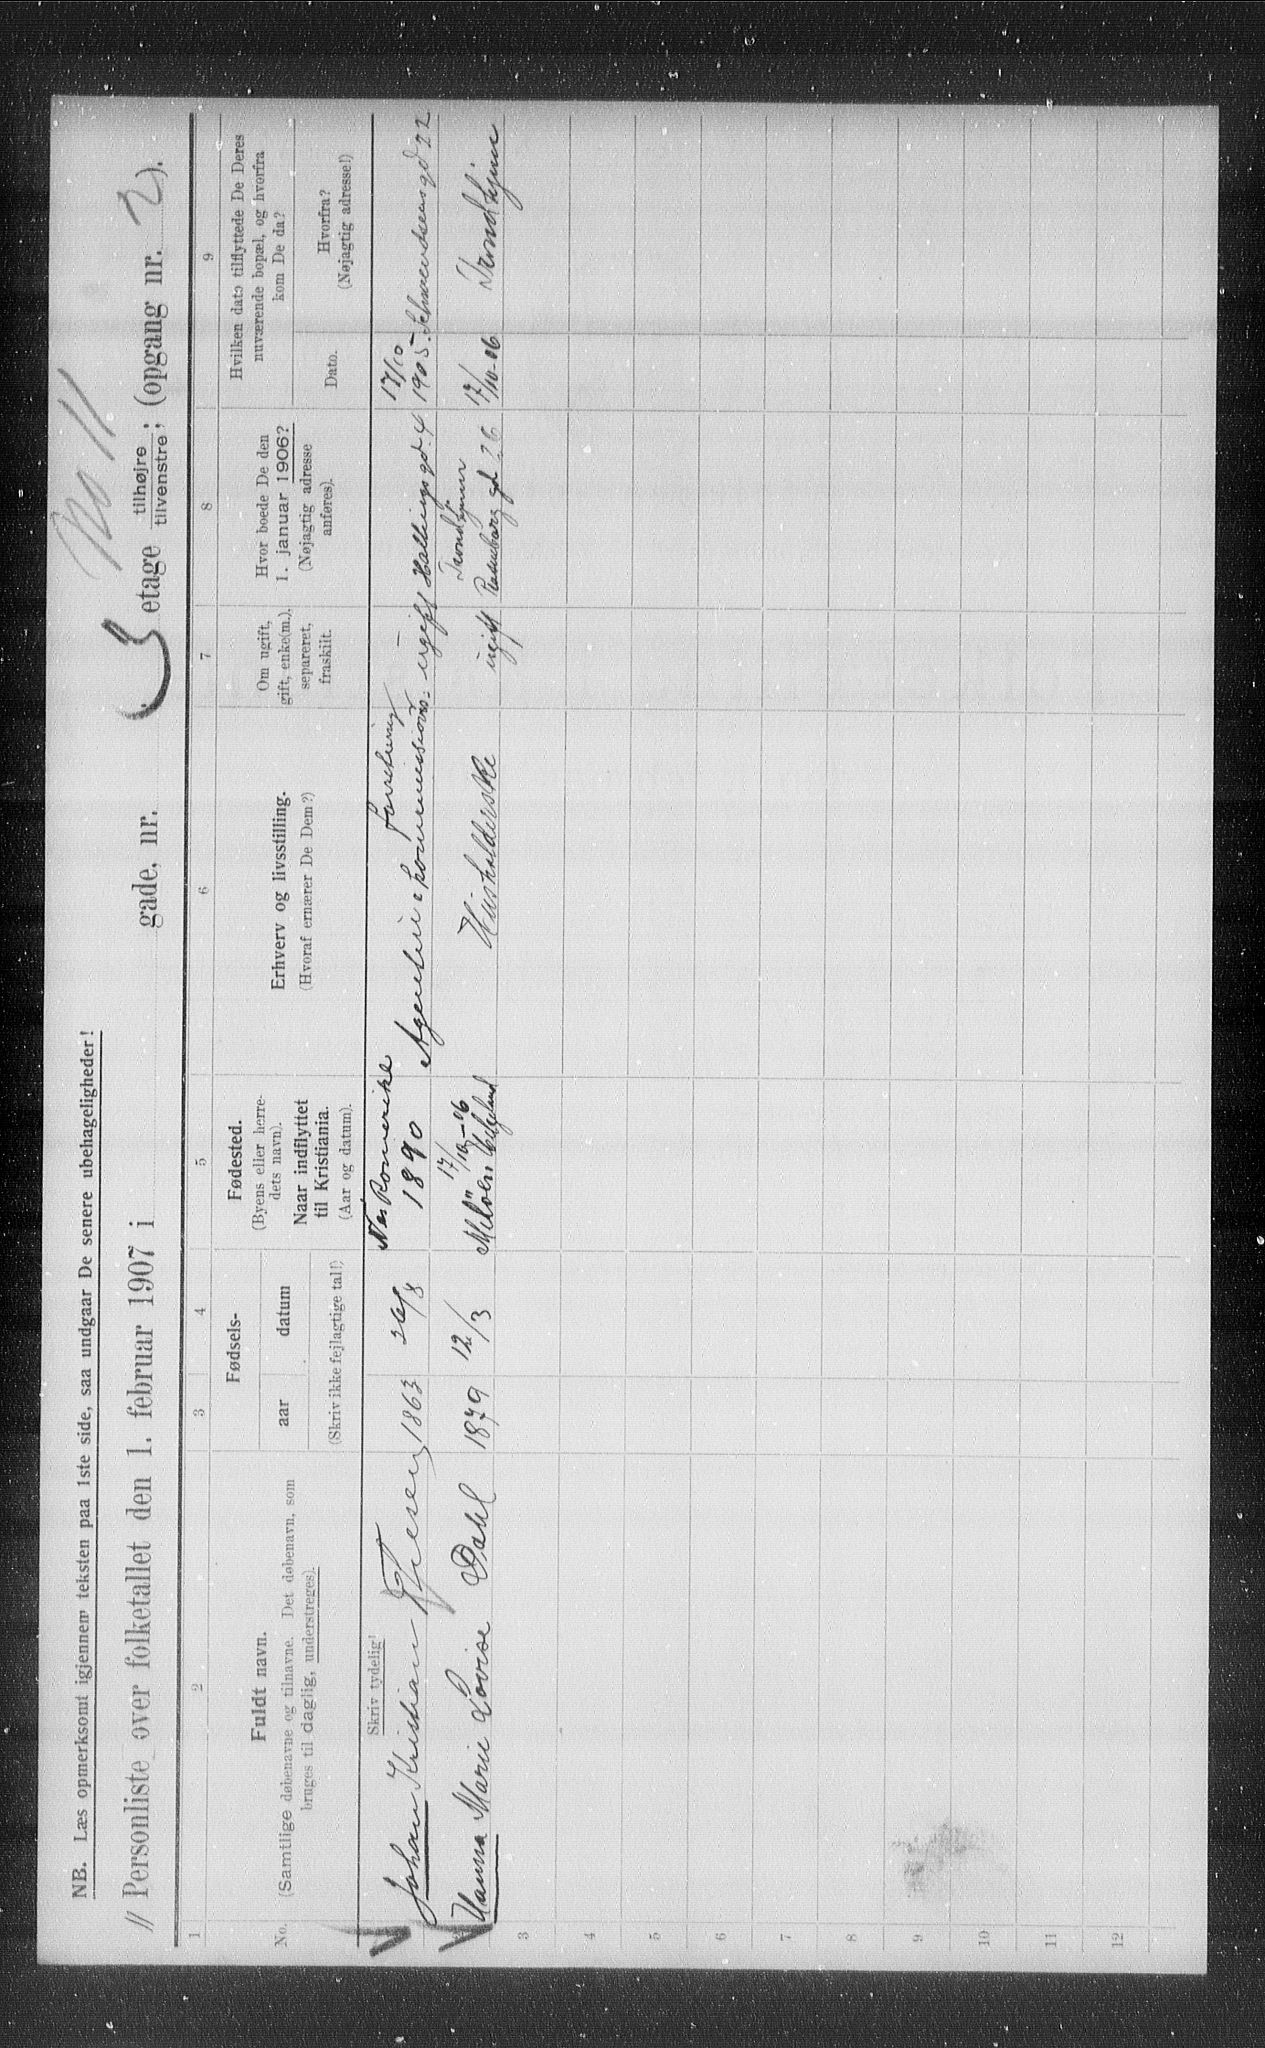 NB. Læs opmerksomt igjennem teksten paa 1ste side, saa undgaar De senere ubehageligheder!
No 11
// Personliste over folketallet den 1. februar 1907 i gade, nr. 3 etage tilhøjre tilvenstre; (opgang nr. 2).
1
2
3
4
5
6
7
8
9
No.
Fuldt navn.
(Samtlige døbenavne og tilnavne. Det døbenavn, som
bruges til daglig, understreges).
Fødsels-
aar
datum
(Skriv ikke fejlagtige tal!)
Fødested.
(Byens eller herre-
dets navn).
Naar indflyttet
til Kristiania.
(Aar og datum).
Erhverv og livsstilling.
(Hvoraf ernærer De Dem?)
Om ugift,
gift, enke(m.),
separeret,
fraskilt.
Hvor boede De den
1. januar 1906?
(Nøjagtig adresse
anføres).
Hvilken dato tilflyttede De Deres
nuværende bopæl, og hvorfra
kom De da?
Dato.
Hvorfra?
(Nøjagtig adresse!)
Skriv tydelig!
Johan Kristian 1863 26/8 Nes Romerike
1890
Agentur & kommissions
forretning
ugift Hallingsgd. 4
17/10
1905. Schwendsensgd 22
Hanna Marie Lovise Dahl 1879 12/3
17/10-06
Husholderske ugift
Trondhjem
Rosenborg gd 26
17/10-06 Trondhjem
3
4
5
6
7
8
9
10
11
12